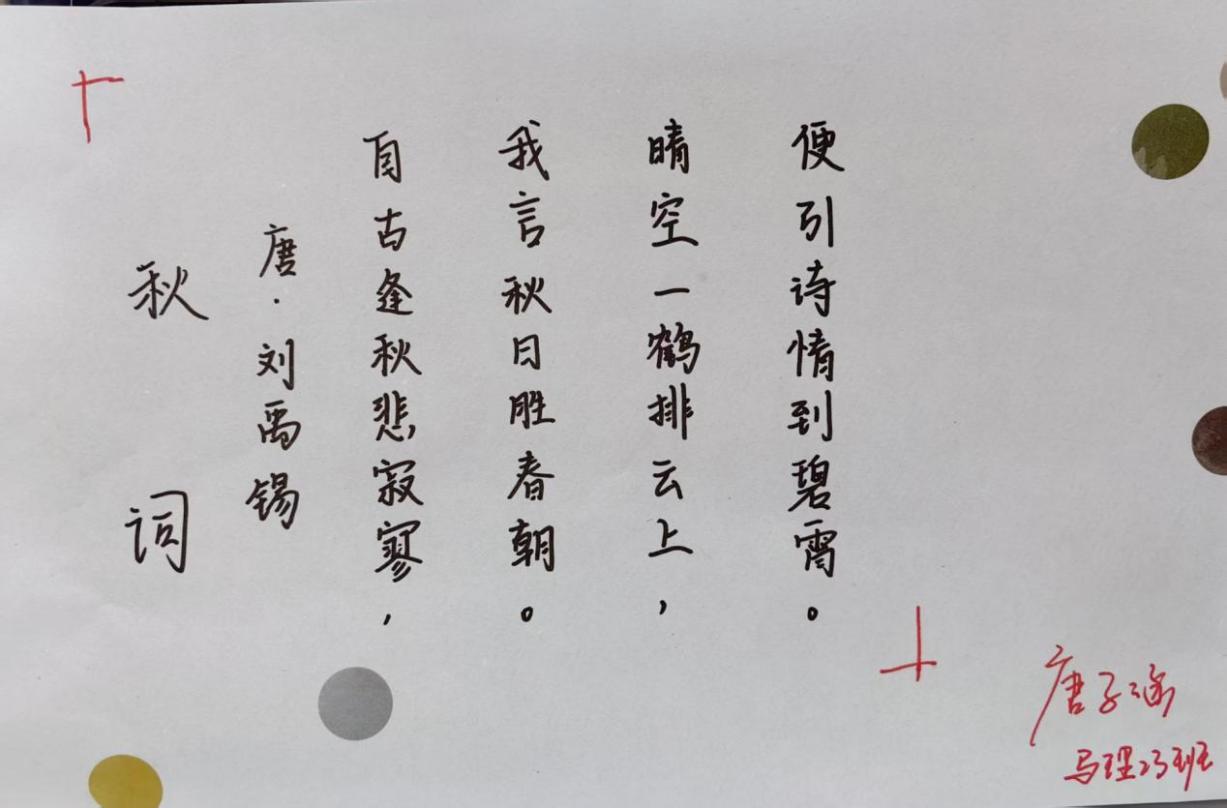 秋词
唐·刘禹锡
自古逢秋悲寂寥，
我言秋日胜春朝。
晴空一鹤排云上，
便引诗情到碧霄。
唐子涵
马理23班